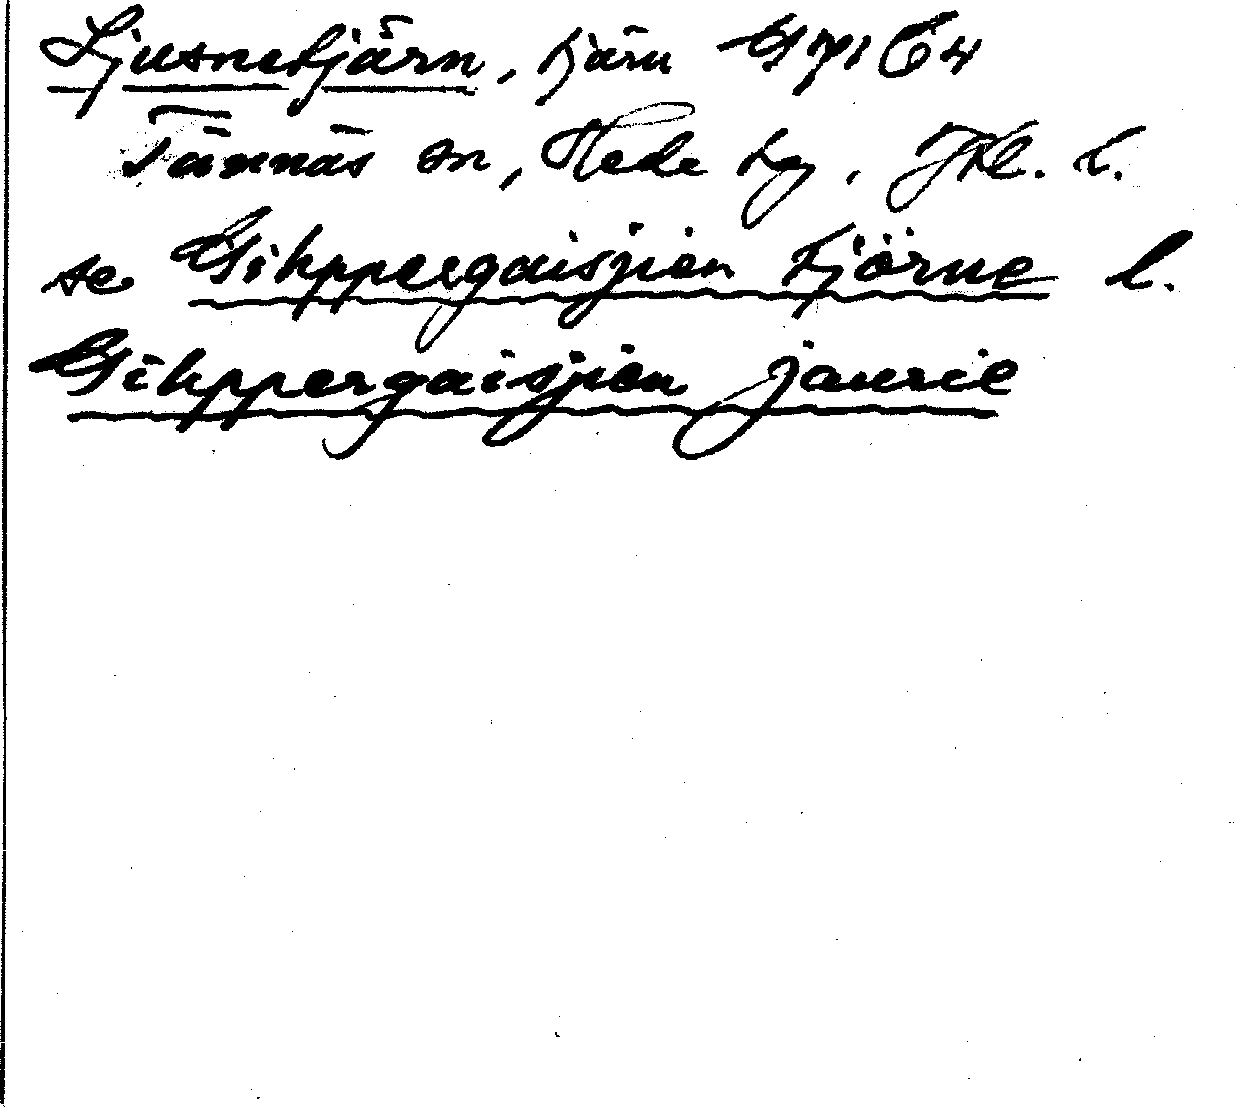 Ljusnetjärn, tjärn
Tännäs sn, Hede tg, Jtl. l.
se Gihppergaisjien tjörne l.
Gihppergaisjien jaurie